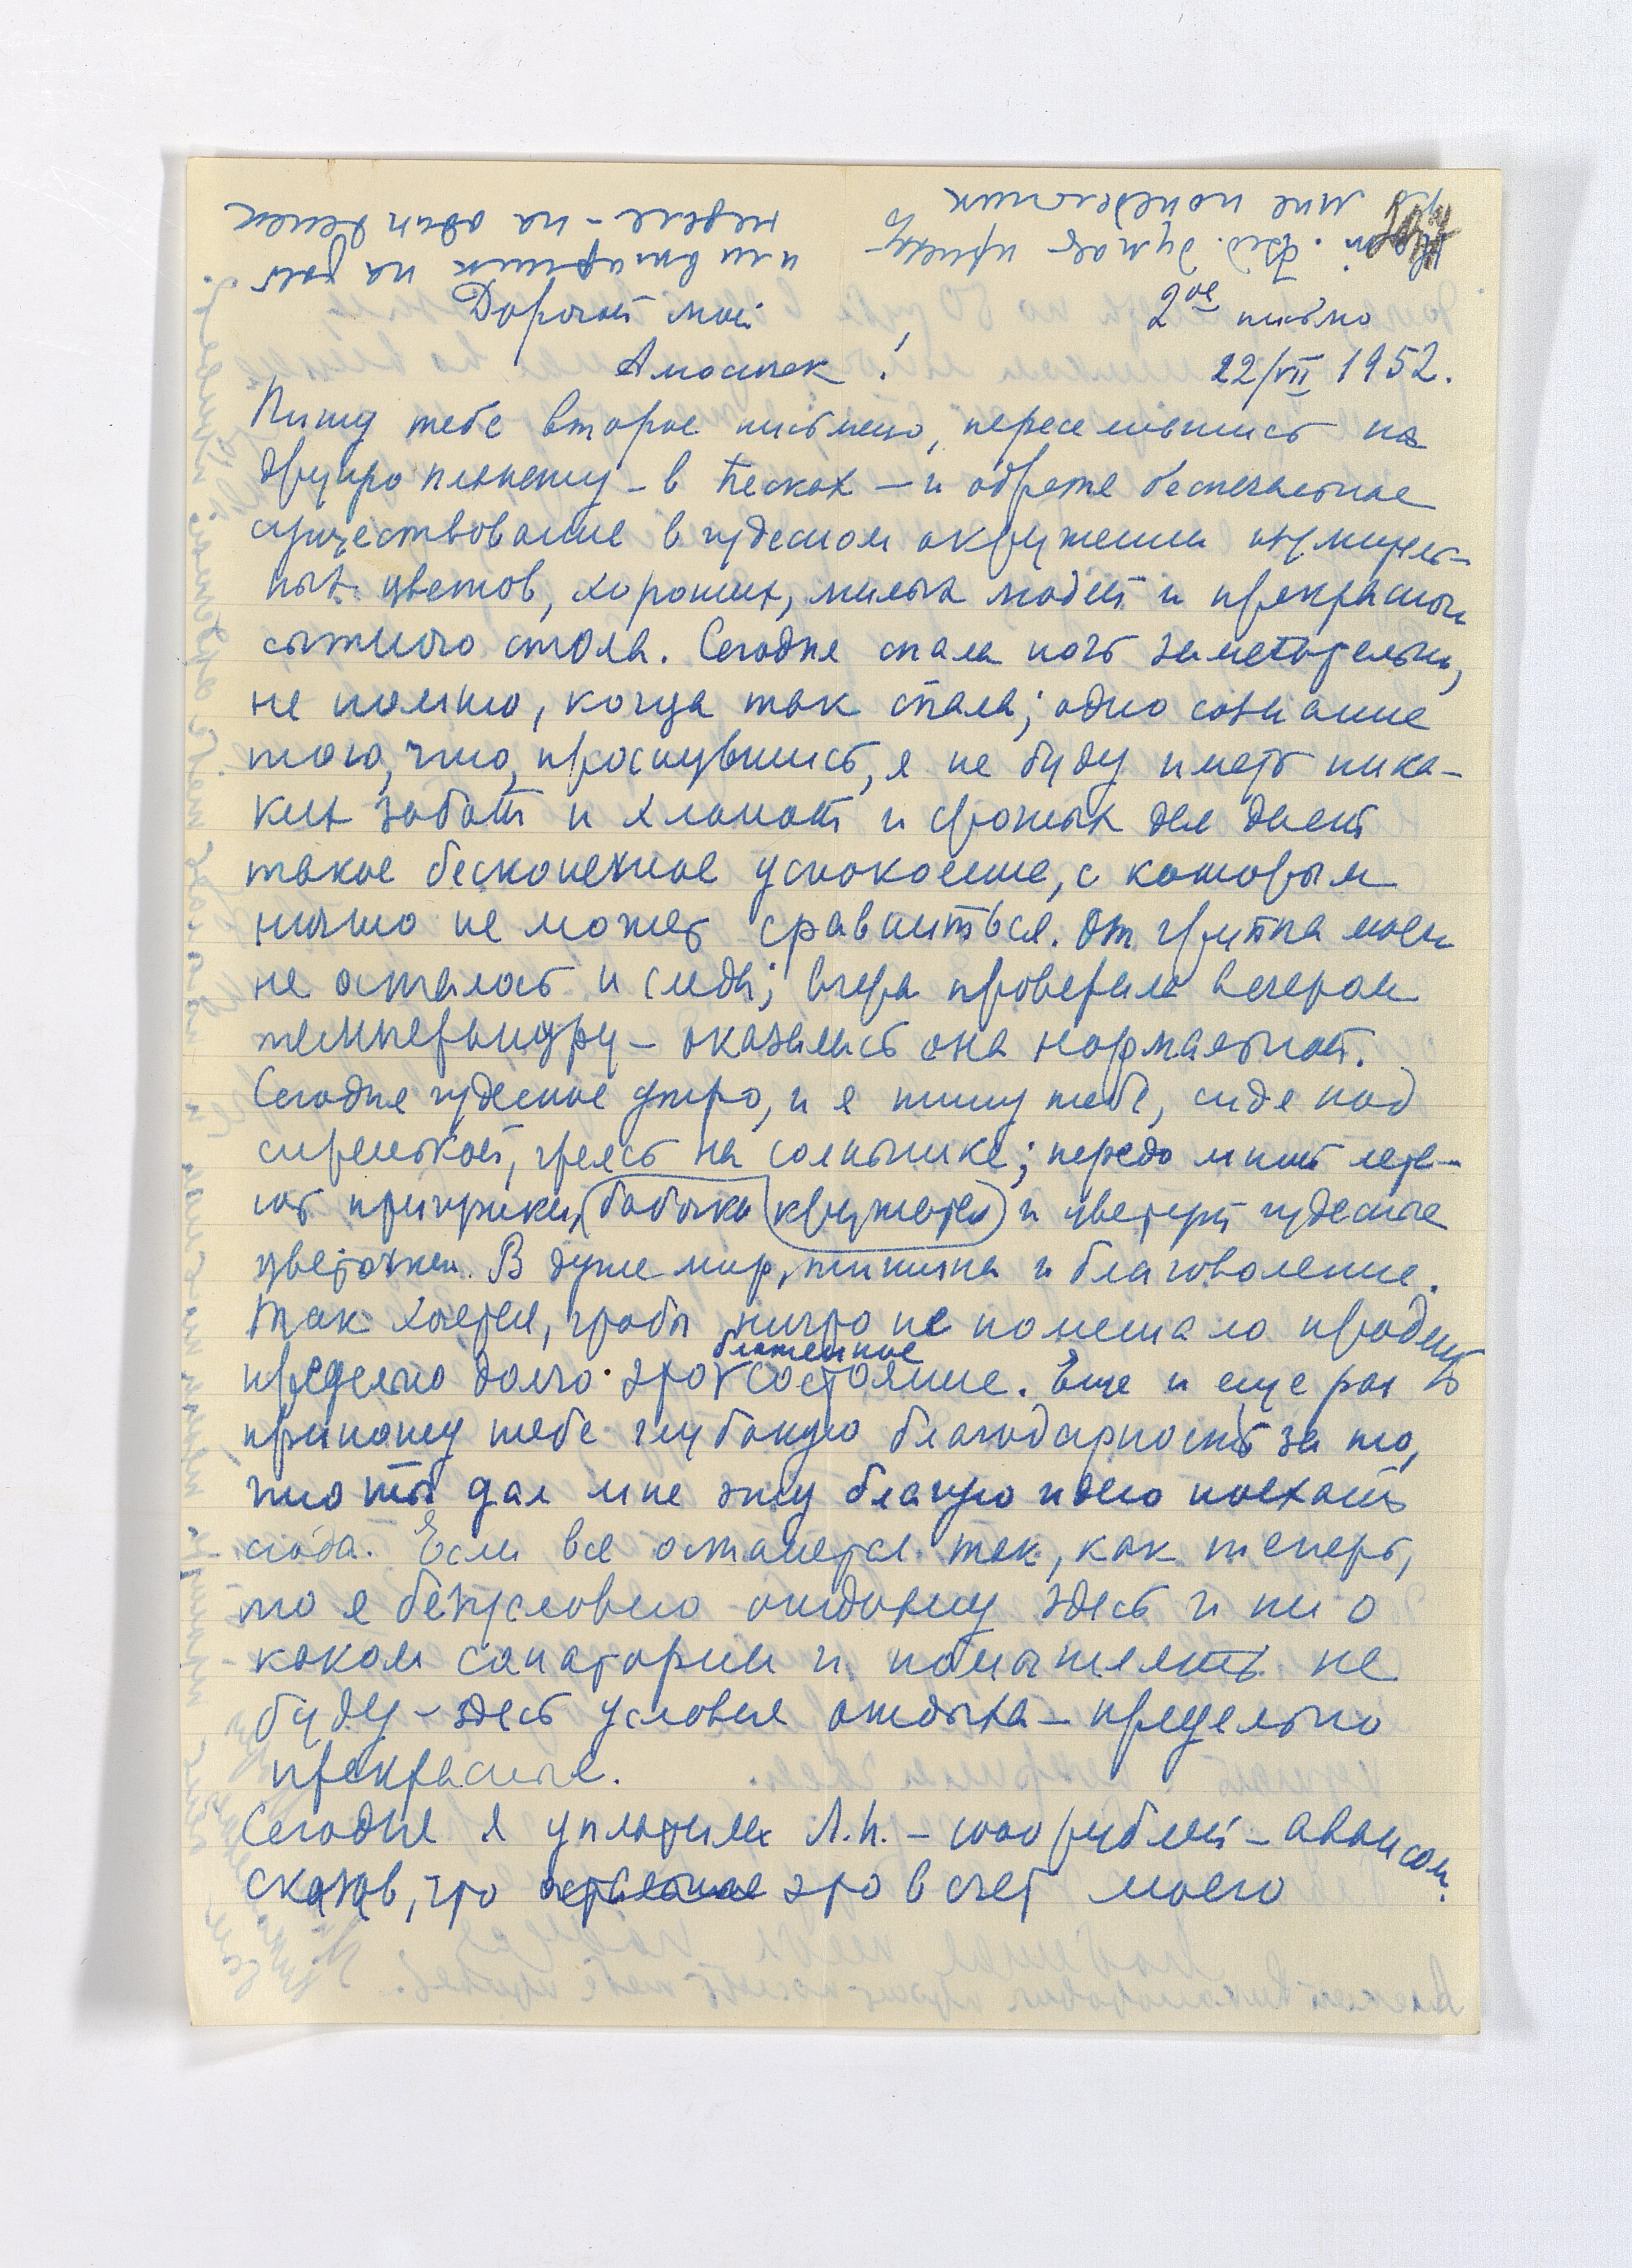 2ое письмо
Дорогой мой
Амосинек!
22/VII 1952.
Пишу тебе второе письмецо, переселившись на
другую планету – в Песках – и обретя беспечальное
существование в чудесном окружении изумитель-
ных цветов, хороших, милых людей и прекрасного
сытного стола. Сегодня спала ночь замечательно,
не помню, когда так спала; одно сознание
того, что, проснувшись, я не буду иметь ника-
ких забот и хлопот и срочных дел дает
такое бесконечное успокоение, с которым
ничто не может сравниться. От гриппа моего
не осталось и следа; вчера проверила вечером
температуру – оказалась она нормальной.
Сегодня чудесное утро, и я пишу тебе, сидя под
сиренькой, греясь на солнышке; передо мной лета-
ют бабочки кружатся и цветут чудесные
цветочки. В душе мир, тишина и благоволение.
Так хочется, чтобы ничто не помешало продлить
предельно долго это блаженное состояние. Еще и еще раз
приношу тебе глубокую благодарность за то,
что ты дал мне эту благую идею поехать
сюда. Если все останется так, как теперь,
то я безусловно отдохну здесь и ни о
каком санатории и помышлять не
буду – здесь условия отдыха – предельно
прекрасные.
Сегодня я уплатила Л.Н. – 1000 рублей – авансом.
сказав, что это в счет моего
или вторник на той
неделе – на один денек
думает приехать
ко мне понедельник